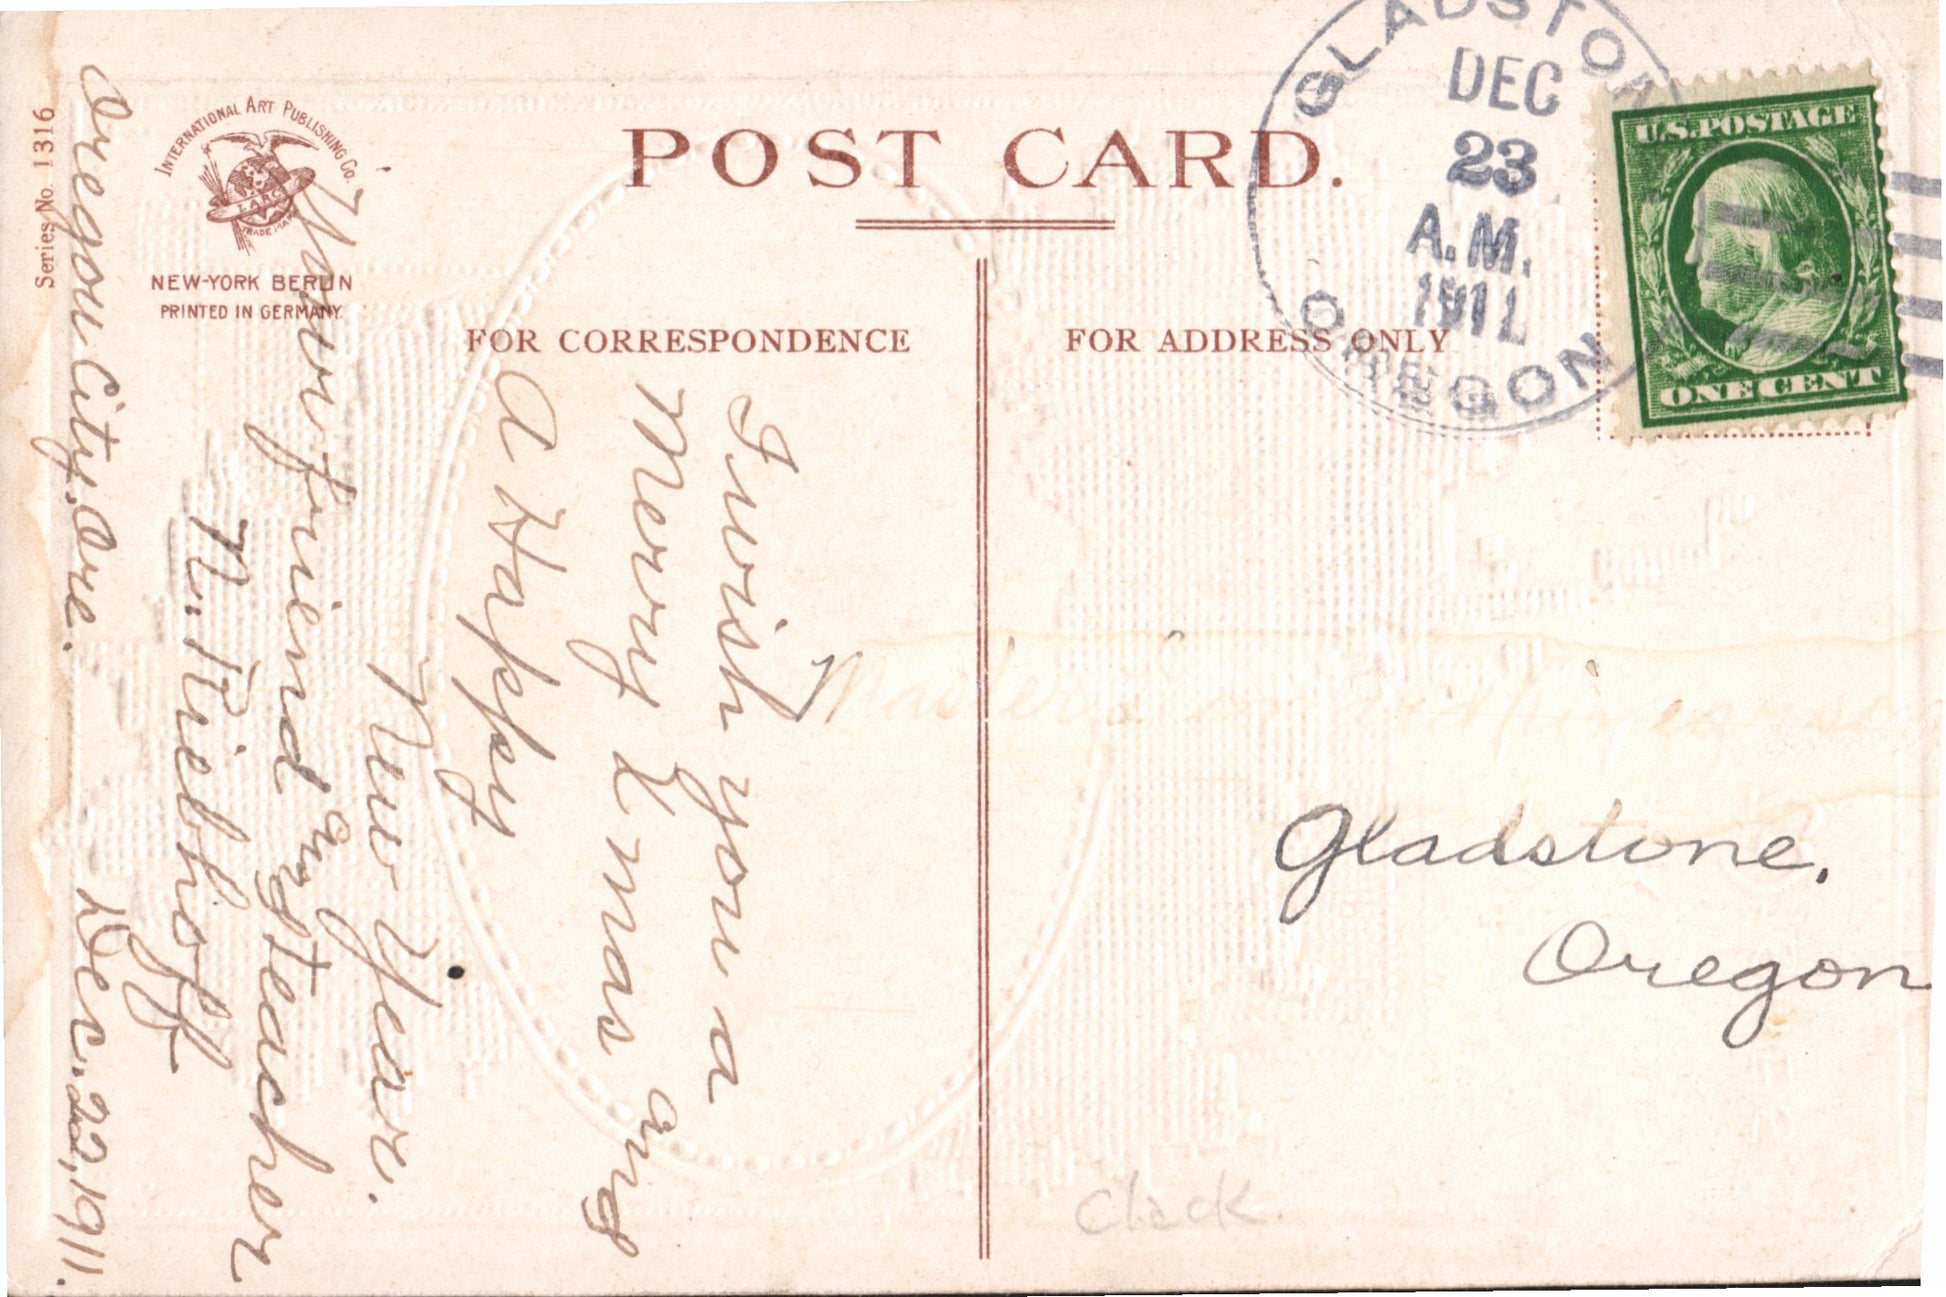 Series No. 1316
INTERNATIONAL ART PUBLISHING CO.
I.A.P.CO.
TRADE MARK
NEW-YORK BERLIN
PRINTED IN GERMANY.
POST CARD.
FOR CORRESPONDENCE
FOR ADDRESS ONLY
GLADSTON
DEC
23
A.M.
1911
OREGON
U.S.POSTAGE
ONE CENT
Oregon City, Ore. Dec. 22, 1911.
I wish you a
Merry Xmas and
A Happy
New Year.
Your friend and teacher
N. Riebhoff
Master
Gladstone,
Oregon
Clack